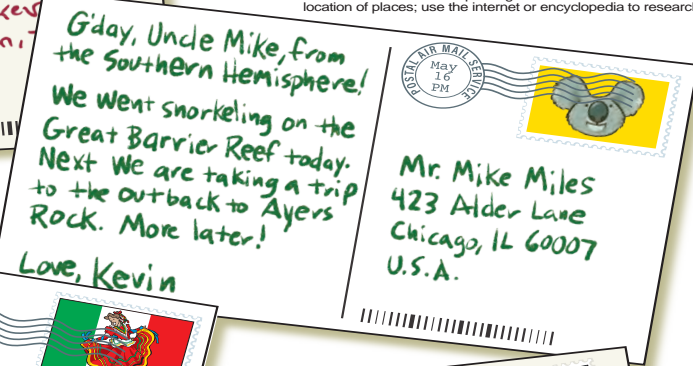 location of places; use the internet or encyclopedia to research
G'day, Uncle Mike, from
the Southern Hemisphere!
We went snorkeling on the
Great Barrier Reef today.
Next we are taking a trip
to the outback to Ayers
Rock. More later!
Love, Kevin
POSTAL AIR MAIL SERVICE
May
16
PM
Mr. Mike Miles
423 Alder Lane
Chicago, IL 60007
U.S.A.